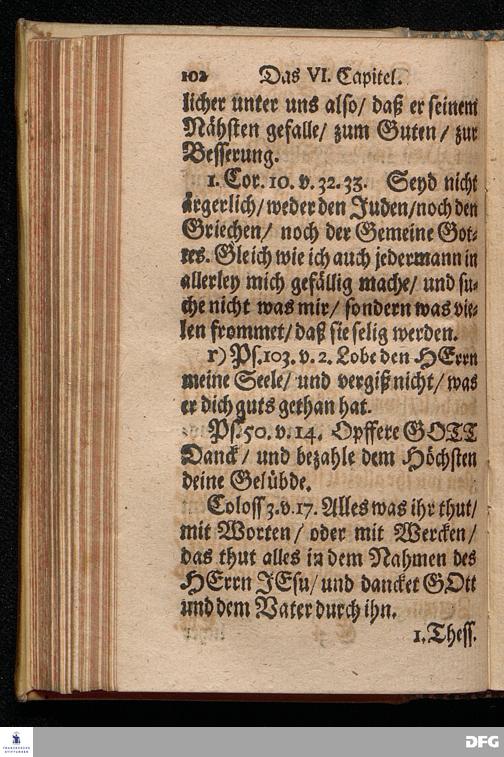 102 Das VI. Capitel.
licher unter uns also/ daß er seinem
Nähsten gefalle/ zum Guten/ zur
Besserung.
1. Cor. 10. v. 32. 33. Seyd nicht
ärgerlich/ weder den Juden/ noch den
Griechen/ noch der Gemeine Got-
tes. Gleich wie ich auch jedermann in
allerley mich gefällig mache/ und su-
che nicht was mir/ sondern was vie-
len frommet/ daß sie selig werden.
r) Ps. 103. v. 2. Lobe den HErrn
meine Seele/ und vergiß nicht/ was
er dich guts gethan hat.
Ps. 50. v. 14. Opffere GOTT
Danck/ und bezahle dem Höchsten
deine Gelübde.
Coloss 3. v. 17. Alles was ihr thut/
mit Worten/ oder mit Wercken/
das thut alles in dem Nahmen des
HErrn JEsu/ und dancket GOtt
und dem Vater durch ihn.
1. Thess.
FRANCKESCHE STIFTUNGEN
DFG